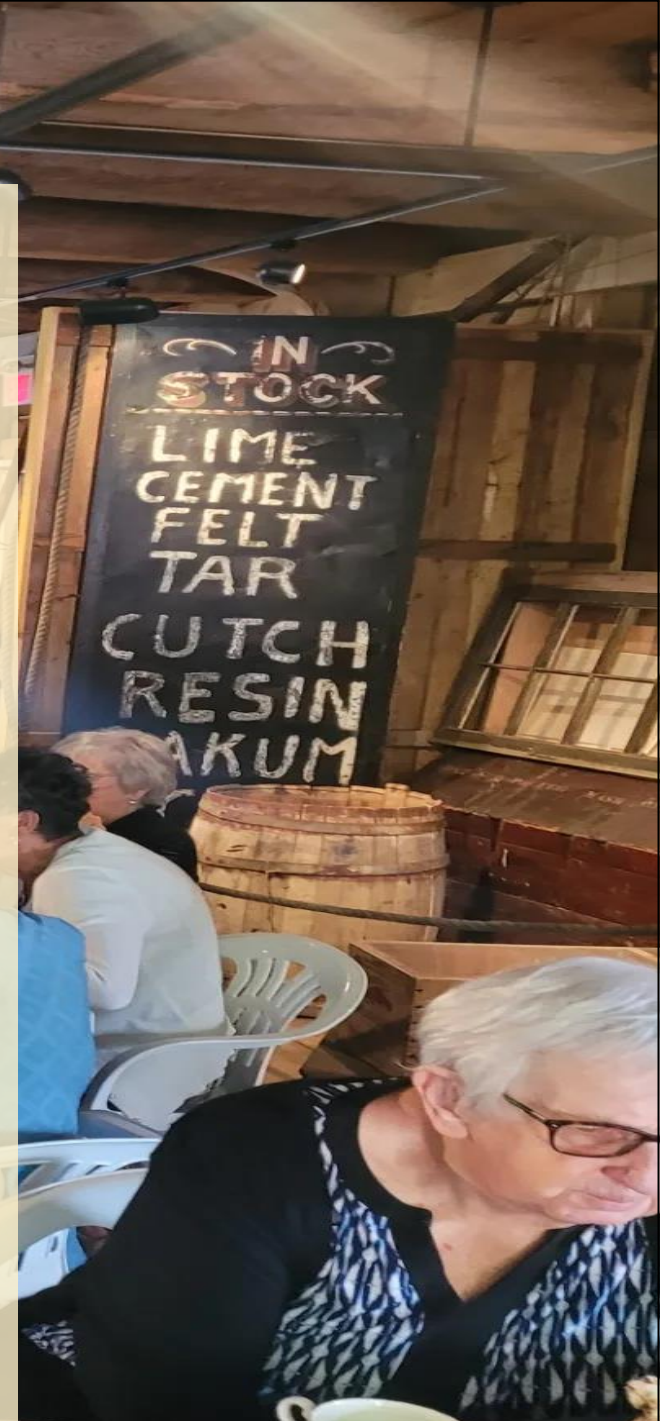 IN
STOCK
LIME
CEMENT
FELT
TAR
CUTCH
RESIN
AKUM